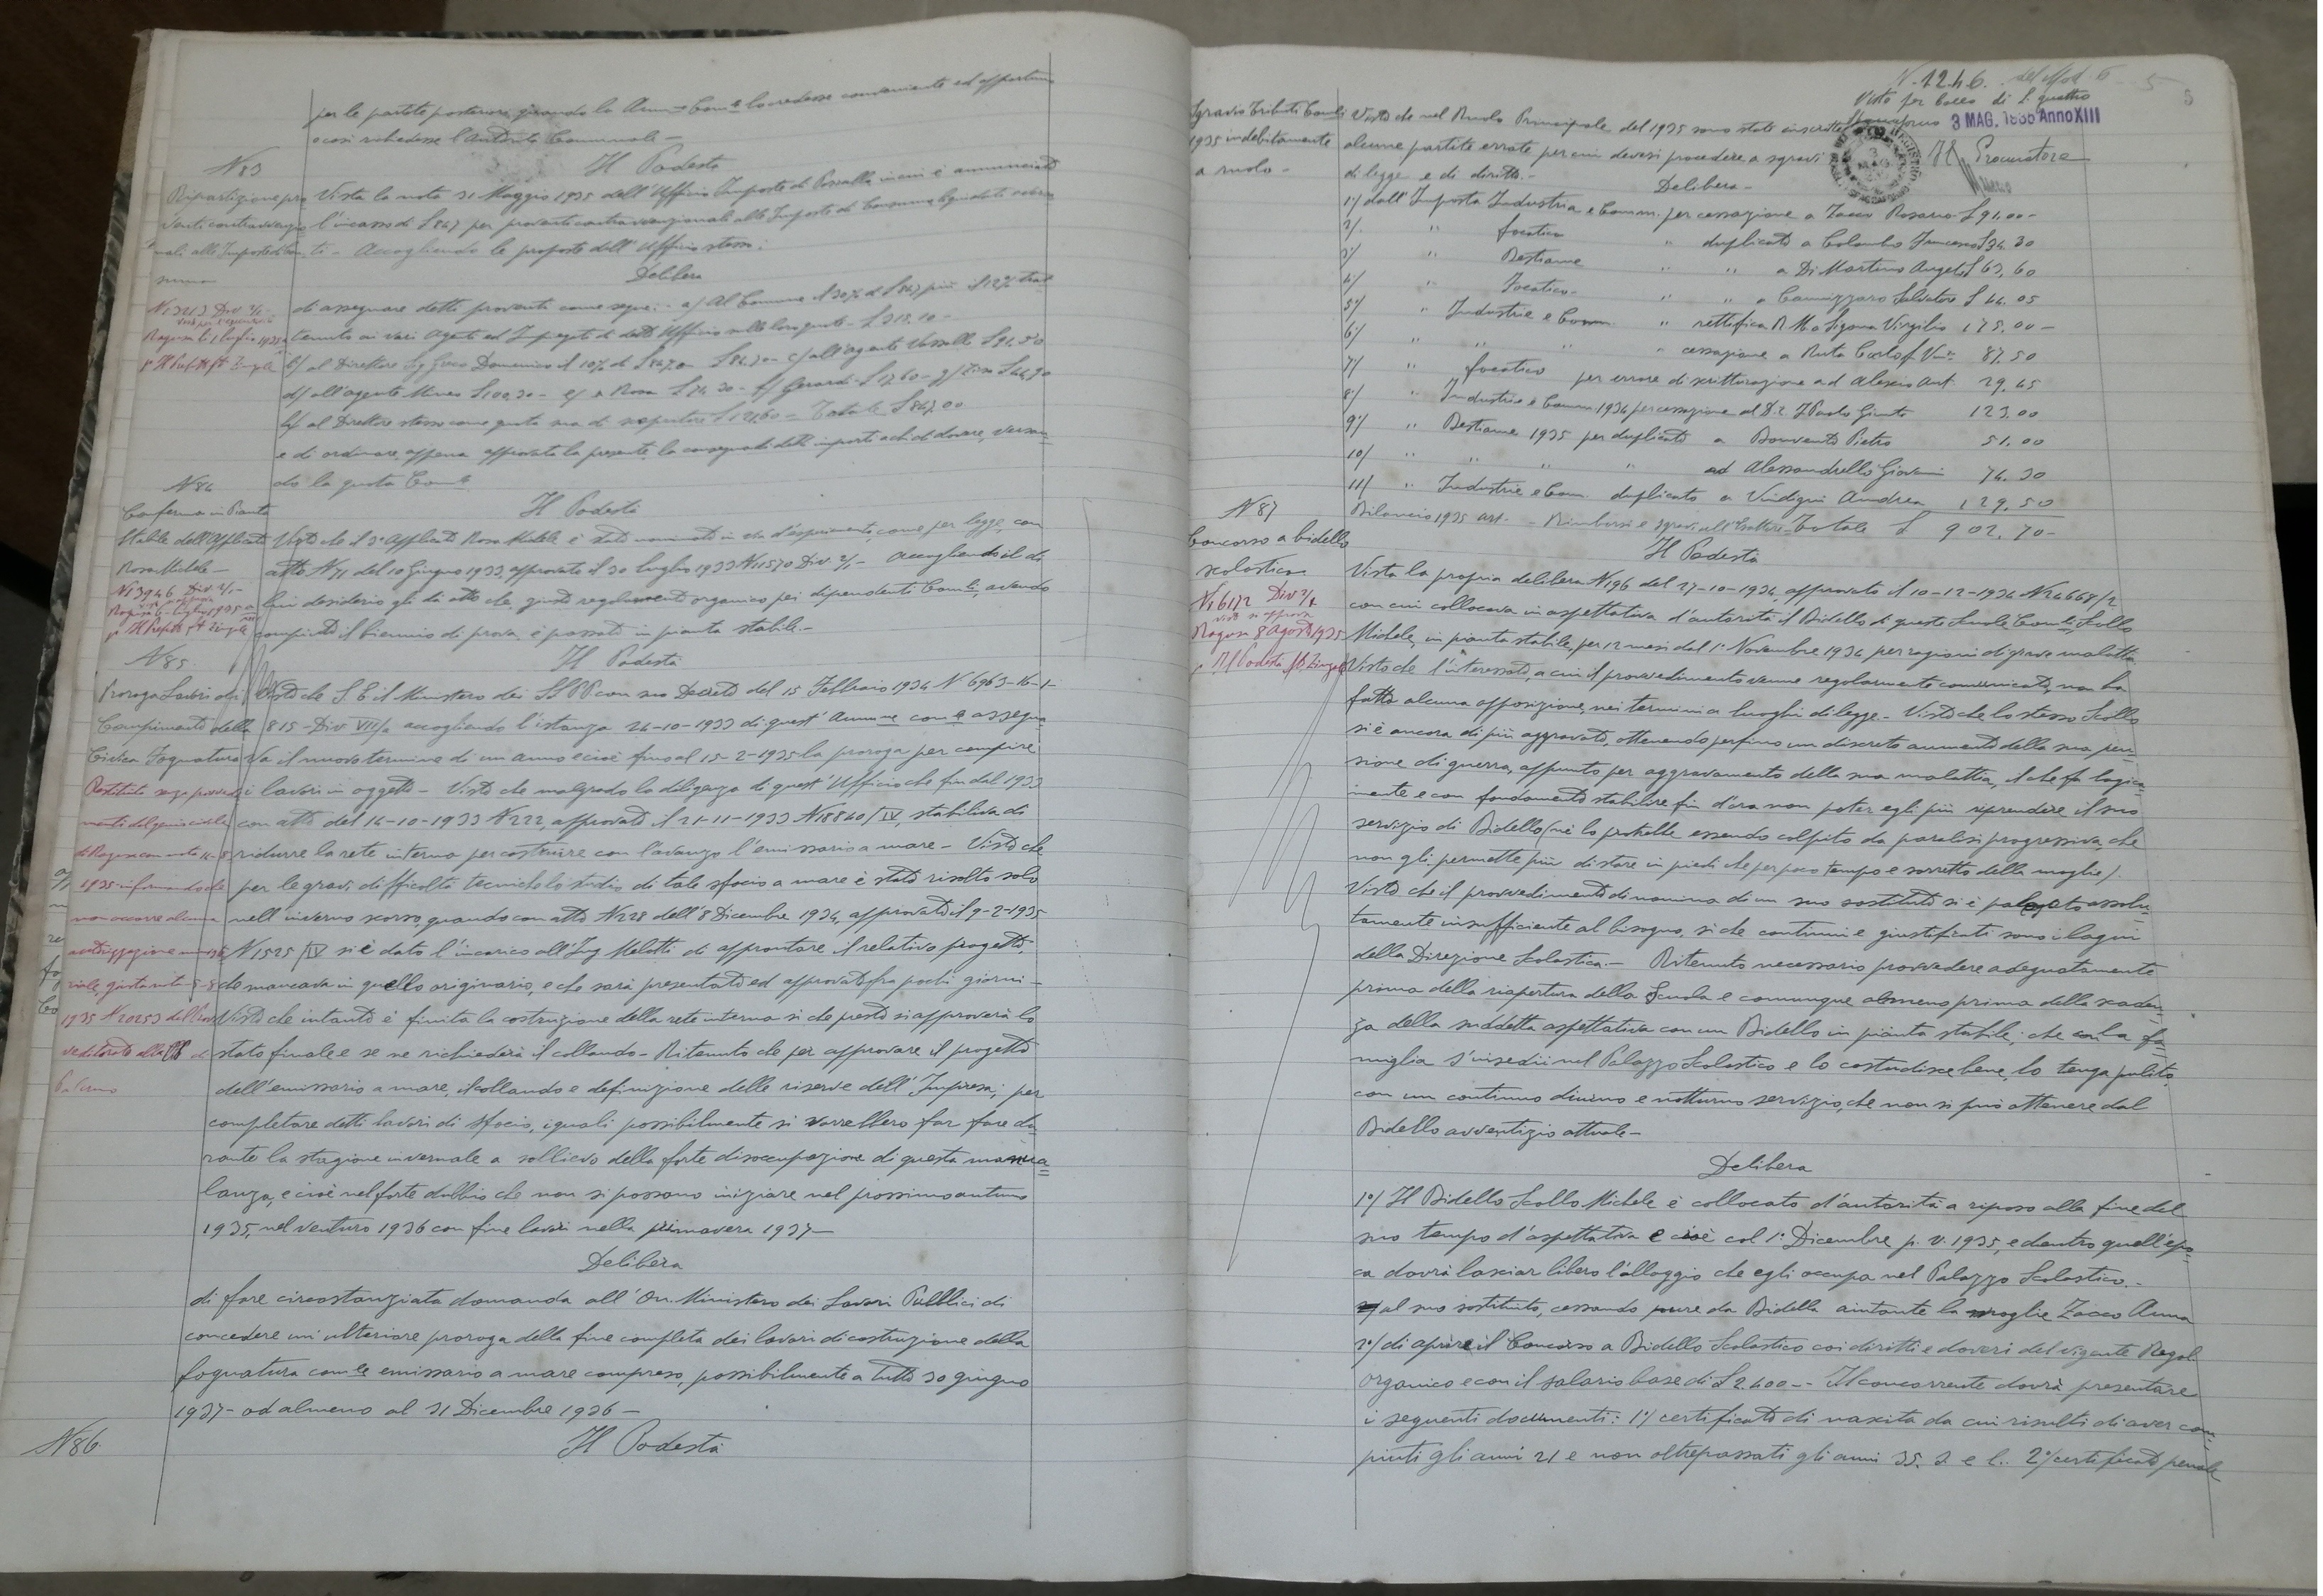 per le partite posteriori, quando la Amm.ne Com.le lo credesse conveniente ed opportuno
o così richiedesse l'Autorità Comunale -
N 83
Il Podestà
Ripartizione pro
venti contravvenzio
nali alle Imposte di Con
sumo
Vista la nota 31 Maggio 1935 dell'Ufficio Imposte di in cui è annunciato
l'incasso di £ 847 per proventi contravvenzionali alle Imposte di Consumo liquidati
ti - Accogliendo le proposte dell'Ufficio stesso:
Delibera
N. 3213 Div 2/1-
Ragusa li 1 luglio 1935
p Il Prefetto ft Zingale
di assegnare detti proventi come segue: a/ Al Comune il 30% di £ 847 più il 12% trat
tenuto ai vari Agenti ed Impiegati di detto Ufficio sulle loro quote - £ 318.10 -
b/ al Direttore Sig. Domenico il 10% di £ 847.0 - £ 84.70 - c/ all'agente Vassallo £ 91.50
d/ all'agente Mineo £ 100,30 - e/ a Rosa £ 74.30 - f/ Gerardi £ 17.60 - g/ £ 44,90
h/ al Direttore stesso come quota sua di scopritore £ 121,60 - Totale £ 847.00
e di ordinare, appena approvata la presente, la consegna di detti importi a chi di dovere, versan
do la quota Com.le
N 84
Conferma in Pianta
Stabile dell'Applicato
Rosa Michele -
N. 3946 Div. 2/1-
Il Podestà
Visto che il 3° Applicato Rosa Michele è stato nominato in via d'esperimento, come per legge, con
atto N 71 del 10 Giugno 1933, approvato il 30 luglio 1933 N 11570 Div. 2/1 - Accogliendo il di
lui desiderio gli dà atto che, giusto regolamento organico pei dipendenti Com.li, avendo
compiuto il biennio di prova, è passato in pianta stabile. -
N 85
Il Podestà
Proroga Lavori di
Compimento della
Civica Fognatura
Restituita senza provvedi
mento dal genio civile
di Ragusa con nota 14-8
1935 informando che
non occorre alcuna
autorizzazione
giusta nota 5-8
1935 N 20253 del Prov
veditorato alle OO PP di
Palermo
Visto che S. E. il Ministero dei LL PP con suo Decreto del 15 Febbraio 1934 N. 6963-16-1-
815 - Div VIII/a accogliendo l'istanza 24-10-1933 di quest'Amm.ne com.le assegna
va il nuovo termine di un anno e cioè fino al 15-2-1935 la proroga per compire
i lavori in oggetto - Visto che malgrado la diligenza di quest'Ufficio che fin dal 1933
con atto del 14-10-1933 N 222, approvato il 21-11-1933 N 18840/IV, stabiliva di
ridurre la rete interna per costruire con l'avanzo l'emissario a mare - Visto che
per le gravi difficoltà tecniche lo studio di tale sfocio a mare è stato risolto solo
nell'inverno scorso, quando con atto N 228 dell'8 Dicembre 1934, approvato il 9-2-1935
N 1525/IV si è dato l'incarico all'Ing Melotti di approntare il relativo progetto,
che mancava in quello originario, e che sarà presentato ed approvato fra pochi giorni -
Visto che intanto è finita la costruzione della rete interna sì che presto si approverà lo
stato finale e se ne richiederà il collaudo - Ritenuto che per approvare il progetto
dell'emissario a mare, il collaudo e definizione delle riserve dell'Impresa; per
completare detti lavori di sfocio, i quali possibilmente si vorrebbero far fare du
rante la stagione invernale a sollievo della forte disoccupazione di questa mano va
lanza, e cioè nel forte dubbio che non si possano iniziare nel prossimo autunno
1935, nel venturo 1936 con fine lavori nella primavera 1937 -
Delibera
di fare circostanziata domanda all'On. Ministero dei Lavori Pubblici di
concedere un'ulteriore proroga della fine completa dei lavori di costruzione della
fognatura com.le emissario a mare compreso, possibilmente a tutto 30 giugno
1937 - od almeno al 31 Dicembre 1936 -
N 86
Il Podestà
N. 1246. del Mod. 6 5
Visto per bollo di L. quattro
3 MAG. 1935 Anno XIII
Il Procuratore
Sgravio Tributi Com.li
1935 indebitamente
a ruolo -
Visto che nel Ruolo Principale del 1935 sono state inscritte
alcune partite errate per cui devesi procedere a sgravi
di legge e di diritto. -
Delibera -
1°/ dall'Imposta Industria e Comm. per cessazione a Zacco Rosario £ 91.00 -
2/. " focatico " duplicato a Colombo Francesco £ 34.30
3/ " Bestiame " " a Di Martino Angelo £ 63,60
4/ " Focatico - " " a Cannizzaro Salvatore £ 44.05
5°/ " Industrie e Comm. " rettifica R M a Sigona Virgilio 175.00 -
6°/ " " " " cessazione a Ruta Carlo f. 87.50
7/ " focatico per errore di scritturazione ad Alescio Ant. 29.45
8/ " Industrie e Comm 1934 per cessazione al D.r Di Paolo Giunta 123.00
9°/ " Bestiame 1935 per duplicato a Bonvento Pietro 51.00
10/ " " " " ad Alessandrello Giovanni 74.30
11/ " Industrie e Com. duplicato a Vindigni Andrea 129.50
Bilancio 1935 art. - Rimborsi e sgravi all'Esattore - Totale £ 902.70 -
N 87
Concorso a bidello
scolastico
N. 6172 Div 2/1
visto si approva
Ragusa 8 Agosto 1935
Il Podestà
Vista la propria delibera N 196 del 27-10-1934, approvato il 10-12-1934 N 24668/2
con cui collocava in aspettativa d'autorità il Bidello di queste Scuole Com.li, Scollo
Michele, in pianta stabile, per 12 mesi dal 1° Novembre 1934 per ragioni di grave malattia
Visto che l'interessato, a cui il provvedimento venne regolarmente comunicato, non ha
fatto alcuna opposizione, nei termini a luoghi di legge - Visto che lo stesso Scollo
si è ancora di più aggravato, ottenendo perfino un discreto aumento della sua pen
sione di guerra, appunto per aggravamento della sua malattia, il che fa logica
mente e con fondamento stabilire fin d'ora non poter egli più riprendere il suo
servizio di Bidello (nè lo potrebbe essendo colpito da paralisi progressiva, che
non gli permette più di stare in piedi che per poco tempo e sorretto della moglie).
Visto che il provvedimento di nomina di un suo sostituto si è palesato assolu
tamente insufficiente al bisogno, sì che continui e giustificati sono i lagni
della Direzione Scolastica. - Ritenuto necessario provvedere adeguatamente
prima della riapertura della Scuola e comunque almeno prima della scaden
za della suddetta aspettativa con un Bidello in pianta stabile; che con la fa
miglia s'insedii nel Palazzo Scolastico e lo custodisce bene, lo tenga pulito,
con un continuo diurno e notturno servizio, che non si può ottenere dal
Bidello avventizio attuale -
Delibera
1°/ Il Bidello Scollo Michele è collocato d'autorità a riposo alla fine del
suo tempo d'aspettativa e cioè col 1° Dicembre p. v. 1935, e dentro quell'epo
ca dovrà lasciar libero l'alloggio che egli occupa nel Palazzo Scolastico. -
al suo sostituto, cessando pure da Bidella aiutante la moglie Zacco Anna
2°/ di aprire il Concorso a Bidello Scolastico coi diritti e doveri del vigente Regol.
organico e con il salario base di £ 2.400 -- Il concorrente dovrà presentare
i seguenti documenti: 1°/ certificato di nascita da cui risulti di aver com
piuti gli anni 21 e non oltrepassati gli anni 35. S. e l.. 2°/ certificato penale